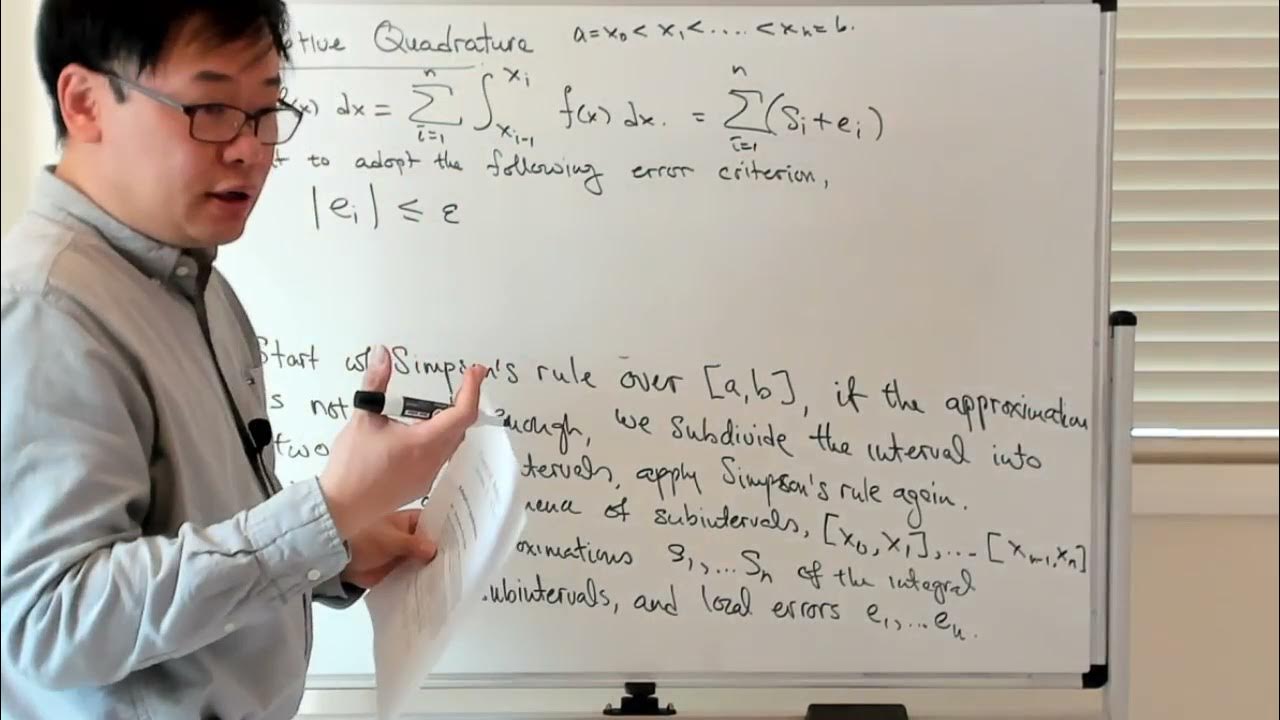 tive Quadrature a = x₀ < x₁ < .... < xₙ = b.
f(x) dx = ∑ᵢ₌₁ⁿ ∫_{xᵢ₋₁}^{xᵢ} f(x) dx. = ∑ᵢ₌₁ⁿ (Sᵢ + eᵢ)
t to adopt the following error criterion,
|eᵢ| ≤ ε
Start w/ Simpson's rule over [a,b], if the approximation
s not nough, we subdivide the interval into
two tervals, apply Simpson's rule again.
of subintervals, [x₀, x₁], ... [xₙ₋₁, xₙ]
oximations S₁, ... Sₙ of the integral
ubintervals, and local errors e₁, ... eₙ.